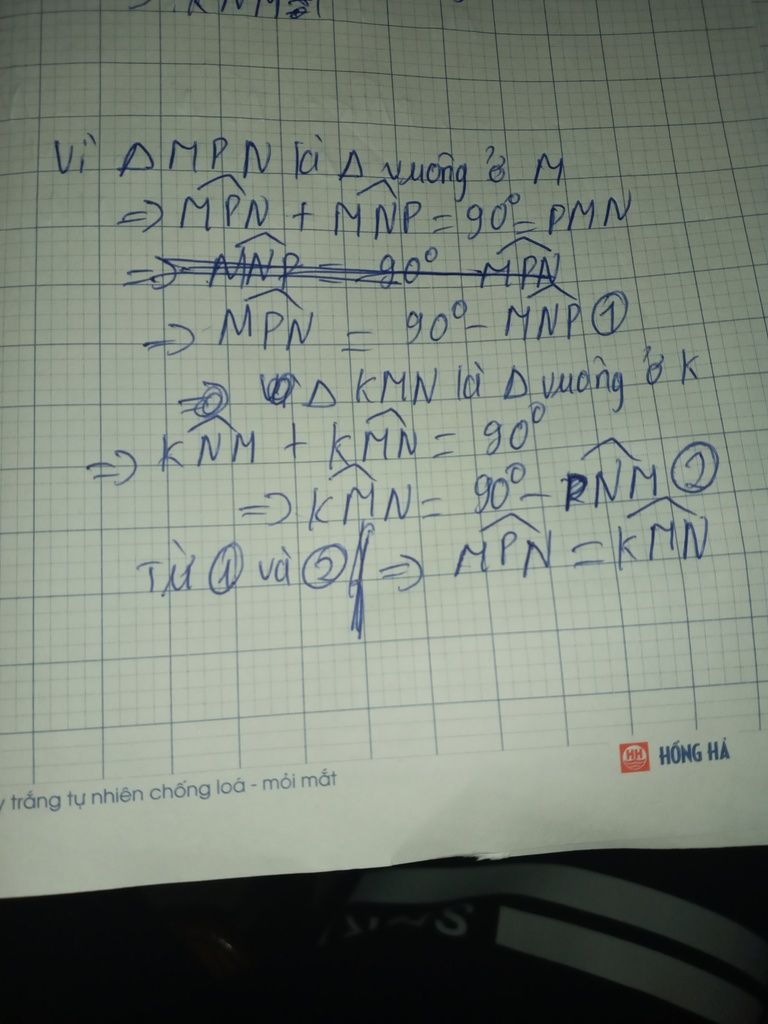 KNM
Vì Δ MPN là Δ vuông ở M
=> MPN + MNP = 90° = PMN
=> MNP = 90° MPN
=> MPN = 90° - MNP ①
=> Δ KMN là Δ vuông ở K
=> KNM + KMN = 90°
=> KMN = 90° - PNM ②
Từ ① và ② => MPN = KMN
HH HỒNG HÀ
trắng tự nhiên chống loá - mỏi mắt